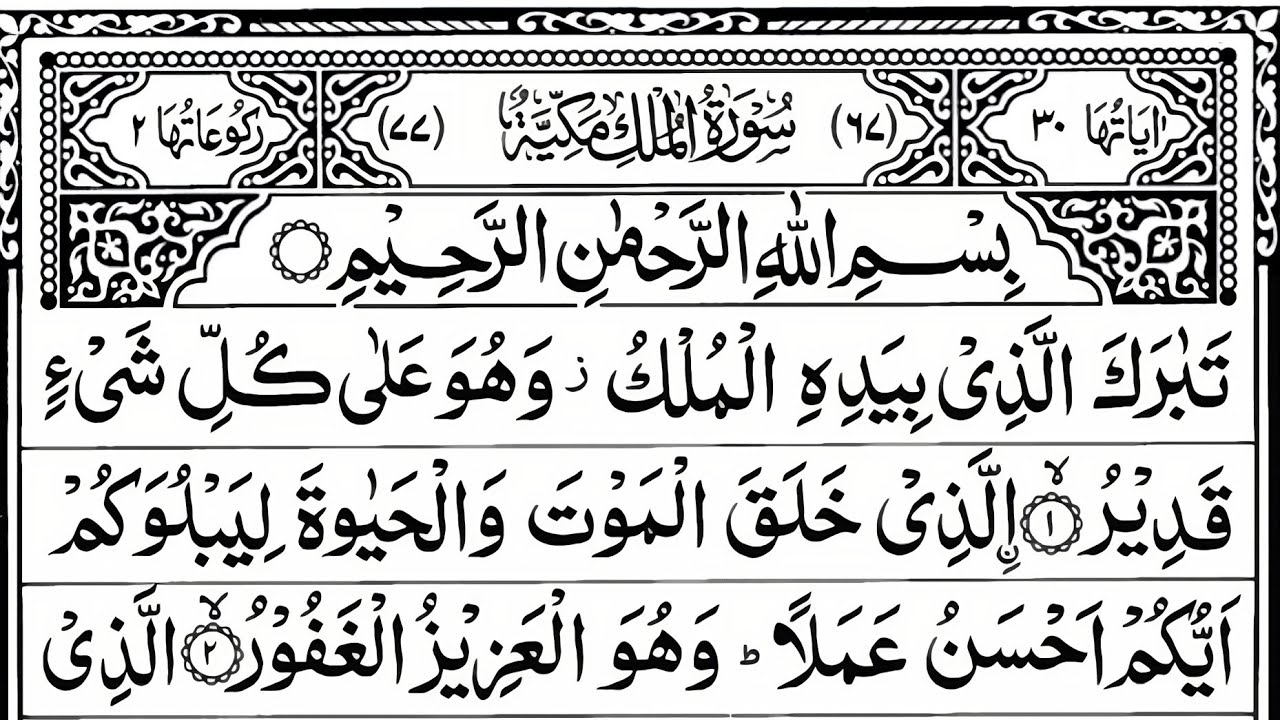 اٰيَاتُهَا ٣٠ (٦٧) سُوْرَةُ الْمُلْكِ مَكِّيَّةٌ (٧٧) رَكُوْعَاتُهَا ٢
بِسْمِ اللّٰهِ الرَّحْمٰنِ الرَّحِيْمِ
تَبٰرَكَ الَّذِىْ بِيَدِهِ الْمُلْكُ ز وَهُوَ عَلٰى كُلِّ شَىْءٍ
قَدِيْرُ ۙ‏﴿١﴾ اۨلَّذِىْ خَلَقَ الْمَوْتَ وَالْحَيٰوةَ لِيَبْلُوَكُمْ
اَيُّكُمْ اَحْسَنُ عَمَلًا ؕ وَهُوَ الْعَزِيْزُ الْغَفُوْرُ ۙ‏﴿٢﴾ الَّذِىْ